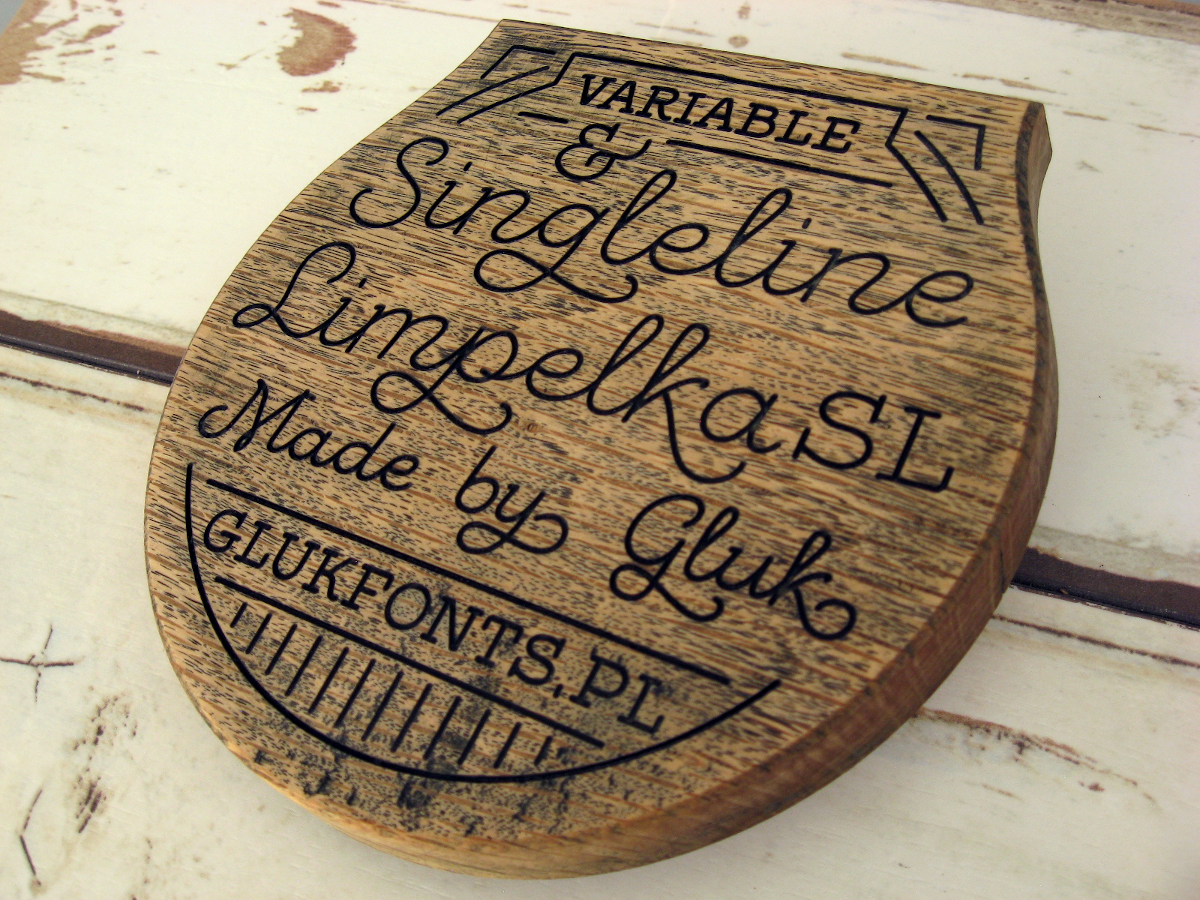 VARIABLE
&
Singleline
Limpelka SL
Made by Gluk
GLUKFONTS.PL